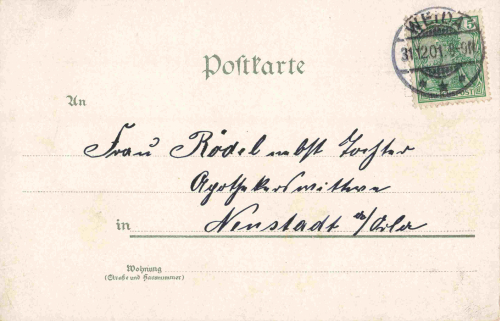 WEIDA
31.12.01. 8-9N.
5
Postkarte
An
Frau Rödel nebst Tochter
Apothekerswittwe
in Neustadt a/Orla
Wohnung
(Straße und Hausnummer)